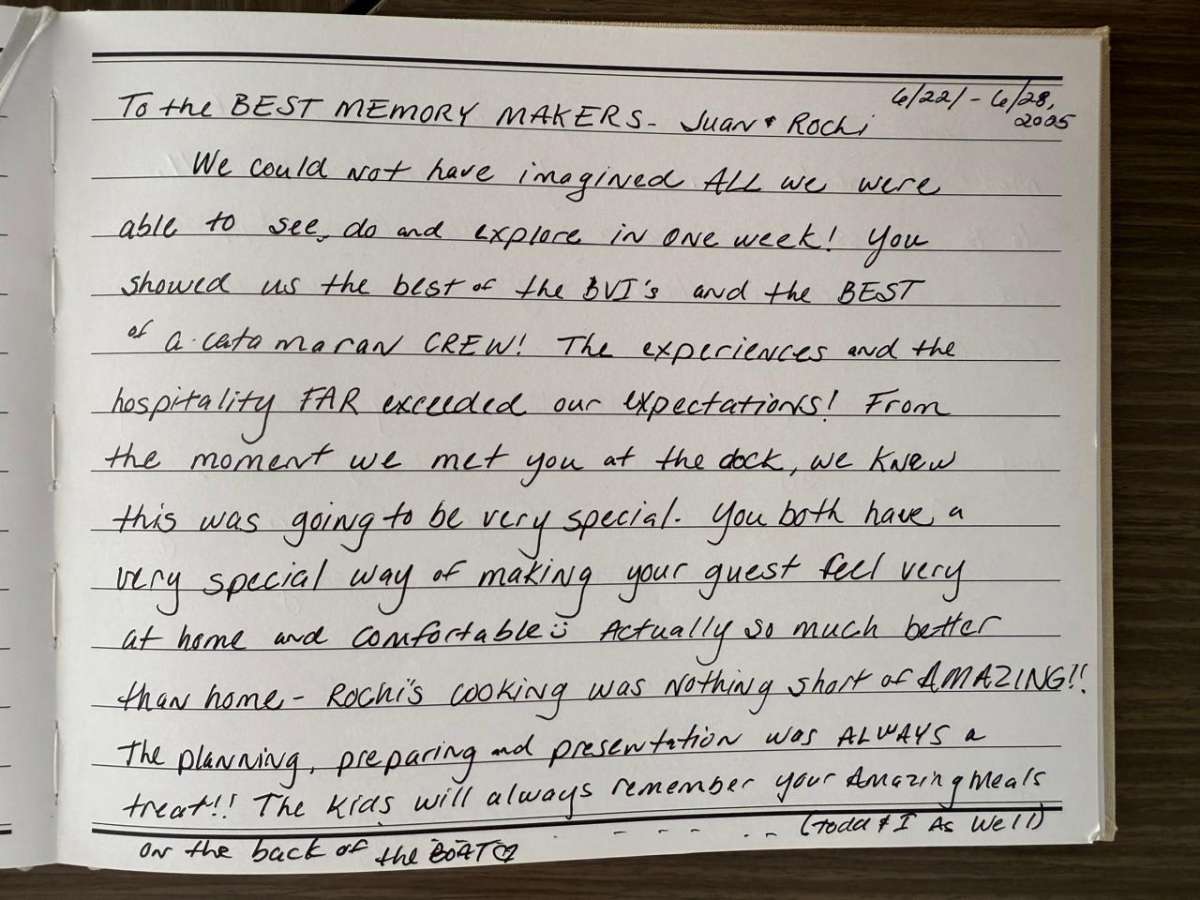 6/22/ - 6/28,
2025
To the BEST MEMORY MAKERS - Juan & Rochi
We could not have imagined ALL we were
able to see, do and explore in one week! You
showed us the best of the BVI's and the BEST
of a catamaran CREW! The experiences and the
hospitality FAR exceeded our expectations! From
the moment we met you at the dock, we knew
this was going to be very special. You both have a
very special way of making your guest feel very
at home and comfortable ü Actually so much better
than home - Rochi's cooking was nothing short of AMAZING!!
The planning, preparing and presentation was ALWAYS a
treat!! The kids will always remember your Amazing Meals
on the back of the BOAT♡ - - - - . . -- (Todd & I As Well)